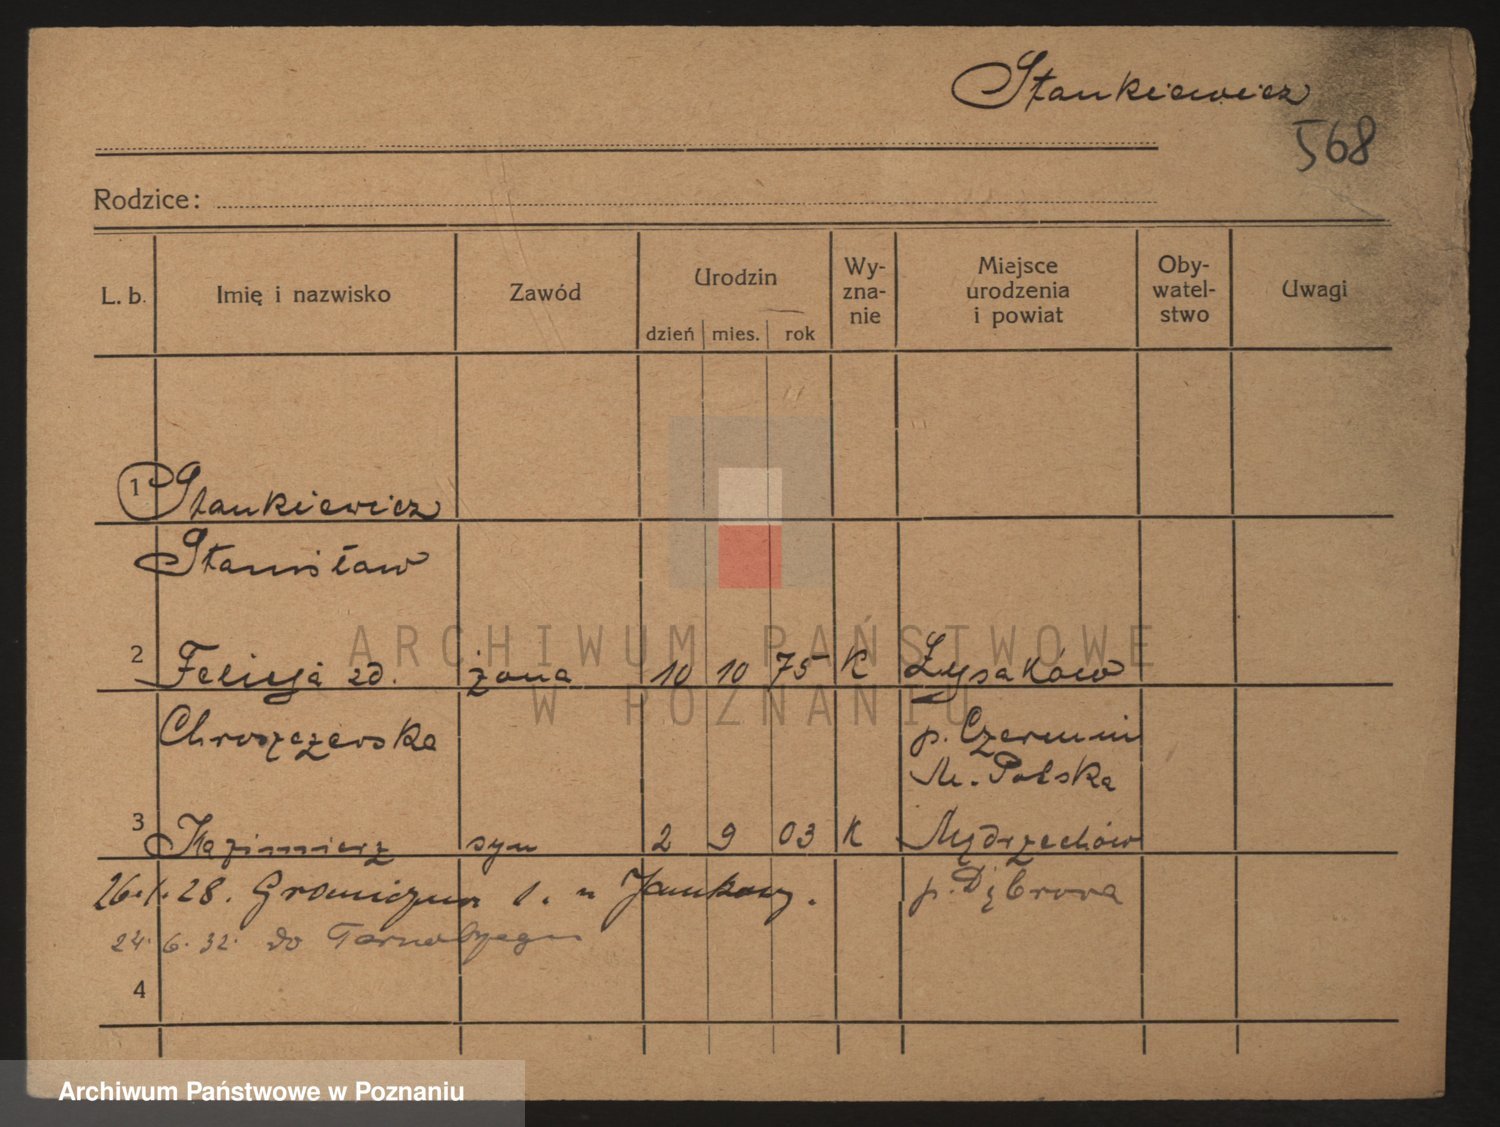 Stankiewicz
568
Rodzice:
L. b. Imię i nazwisko Zawód Urodzin dzień mies. rok Wy-zna-nie Miejsce urodzenia i powiat Oby-watel-stwo Uwagi
1 Stankiewicz
Stanisław
2 Felicja zd. żona 10 10 75 K Łysaków
Chroszczewska p. Czermin
M. Polska
3 Kazimierz syn 2 9 03 K Mędrzechów
26.1.28. Graniczna 1. u Jankowy. p. Dąbrowa
24.6.32. do Tarnobrzegu
4
ARCHIWUM PAŃSTWOWE
W POZNANIU
Archiwum Państwowe w Poznaniu